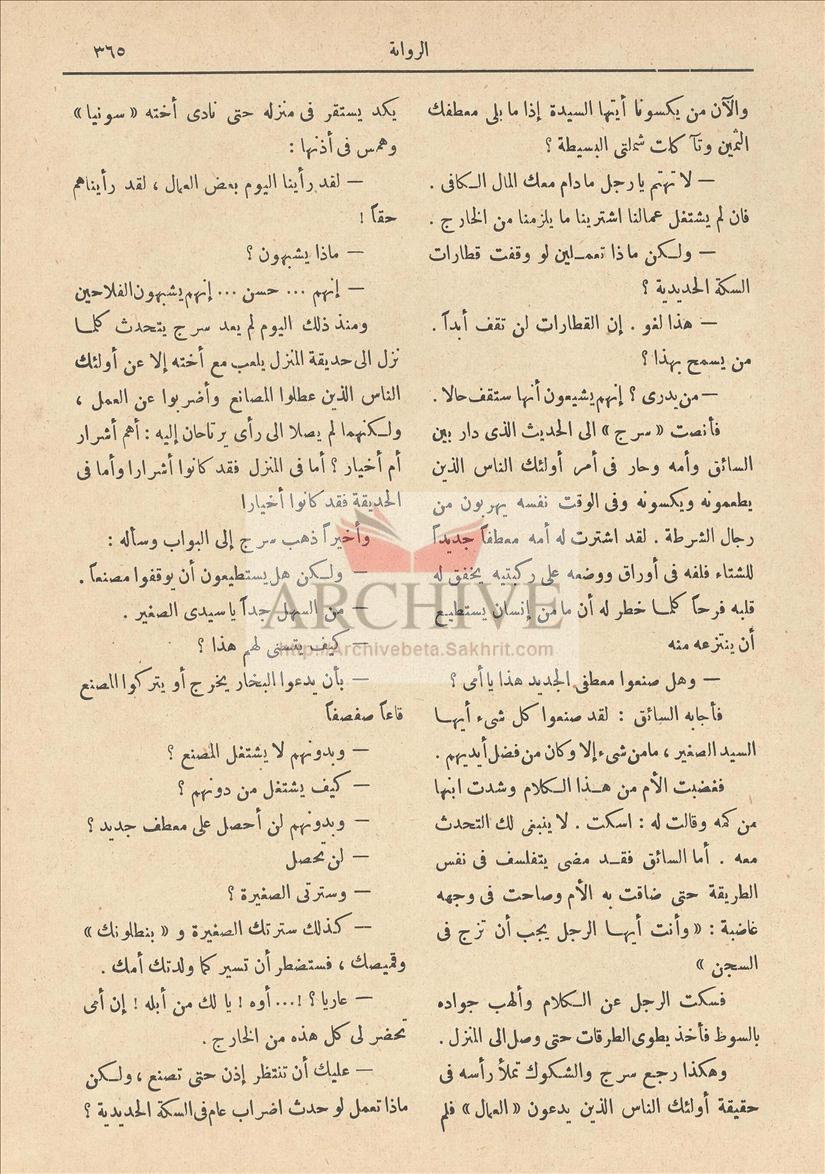 الرواية
٣٦٥
والآن من يكسونا أيتها السيدة إذا ما بلى معطفك
الثمين وتآكلت شملتى البسيطة ؟
— لا تهتم يا رجل مادام معك المال الكافى .
فان لم يشتغل عمالنا اشترينا ما يلزمنا من الخارج .
— ولكن ماذا تعملين لو وقفت قطارات
السكة الحديدية ؟
— هذا لغو . إن القطارات لن تقف أبداً .
من يسمح بهذا ؟
— من يدرى ؟ إنهم يشيعون أنها ستقف حالا .
فأنصت « سرج » الى الحديث الذى دار بين
السائق وأمه وحار فى أمر أولئك الناس الذين
يطعمونه ويكسونه وفى الوقت نفسه يهربون من
رجال الشرطة . لقد اشترت له أمه معطفاً جديداً
للشتاء فلفه فى أوراق ووضعه على ركبتيه يخفق له
قلبه فرحاً كلما خطر له أن ما من إنسان يستطيع
أن ينتزعه منه
— وهل صنعوا معطفى الجديد هذا يا أمى ؟
فأجابه السائق : لقد صنعوا كل شىء أيها
السيد الصغير ، مامن شىء إلا وكان من فضل أيديهم .
فغضبت الأم من هذا الكلام وشدت ابنها
من كمه وقالت له : اسكت . لا ينبغى لك التحدث
معه . أما السائق فقد مضى يتفلسف فى نفس
الطريقة حتى ضاقت به الأم وصاحت فى وجهه
غاضبة : « وأنت أيها الرجل يجب أن تزج فى
السجن »
فسكت الرجل عن الكلام وألهب جواده
بالسوط فأخذ يطوى الطرقات حتى وصل الى المنزل .
وهكذا رجع سرج والشكوك تملأ رأسه فى
حقيقة أولئك الناس الذين يدعون « العمال » فلم
يكد يستقر فى منزله حتى نادى أخته « سونيا »
وهمس فى أذنها :
— لقد رأينا اليوم بعض العمال ، لقد رأيناهم
حقاً !
— ماذا يشبهون ؟
— إنهم ... حسن ... إنهم يشبهون الفلاحين
ومنذ ذلك اليوم لم يعد سرج يتحدث كلما
نزل الى حديقة المنزل يلعب مع أخته إلا عن أولئك
الناس الذين عطلوا المصانع وأضربوا عن العمل ،
ولكنهما لم يصلا الى رأى يرتاحان إليه : أهم أشرار
أم أخيار ؟ أما فى المنزل فقد كانوا أشرارا وأما فى
الحديقة فقد كانوا أخيارا
وأخيراً ذهب سرج إلى البواب وسأله :
— ولكن هل يستطيعون أن يوقفوا مصنعاً .
— من السهل جداً يا سيدى الصغير .
— كيف يتسنى لهم هذا ؟
— بأن يدعوا البخار يخرج أو يتركوا المصنع
قاعاً صفصفاً
— وبدونهم لا يشتغل المصنع ؟
— كيف يشتغل من دونهم ؟
— وبدونهم لن أحصل على معطف جديد ؟
— لن تحصل
— وسترتى الصغيرة ؟
— كذلك سترتك الصغيرة و « بنطلونك »
وقميصك ، فستضطر أن تسير كما ولدتك أمك .
— عاريا ؟ !... أوه ! يا لك من أبله ! إن أمى
تحضر لى كل هذه من الخارج .
— عليك أن تنتظر إذن حتى تصنع ، ولكن
ماذا تعمل لو حدث اضراب عام فى السكة الحديدية ؟
ARCHIVE
http://Archivebeta.Sakhrit.com